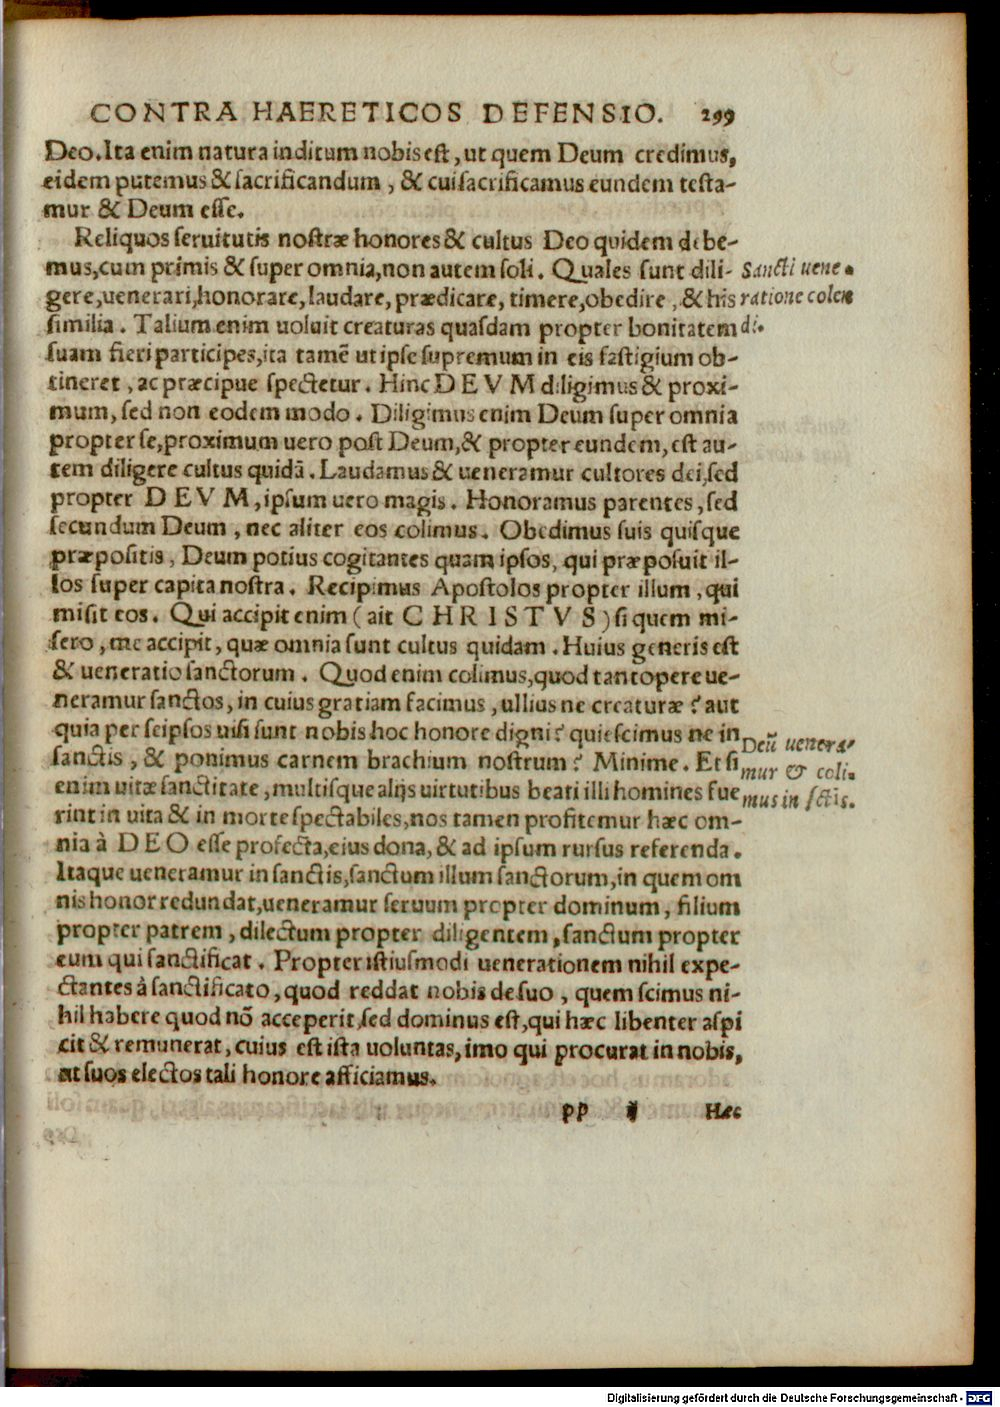 CONTRA HAERETICOS DEFENSIO. 299
Deo. Ita enim natura inditum nobis est, ut quem Deum credimus,
eidem putemus & sacrificandum, & cui sacrificamus eundem testa-
mur & Deum esse.
Reliquos seruitutis nostræ honores & cultus Deo quidem debe-
mus, cum primis & super omnia, non autem soli. Quales sunt dili-
gere, uenerari, honorare, laudare, prædicare, timere, obedire, & his
similia. Talium enim uoluit creaturas quasdam propter bonitatem
suam fieri participes, ita tamē ut ipse supremum in eis fastigium ob-
tineret, ac præcipue spectetur. Hinc DEVM diligimus & proxi-
mum, sed non eodem modo. Diligimus enim Deum super omnia
propter se, proximum uero post Deum, & propter eundem, est au-
tem diligere cultus quidā. Laudamus & ueneramur cultores dei, sed
propter DEVM, ipsum uero magis. Honoramus parentes, sed
secundum Deum, nec aliter eos colimus. Obedimus suis quisque
præpositis, Deum potius cogitantes quam ipsos, qui præposuit il-
los super capita nostra. Recipimus Apostolos propter illum, qui
misit eos. Qui accipit enim (ait CHRISTVS) si quem mi-
sero, me accipit, quæ omnia sunt cultus quidam. Huius generis est
& ueneratio sanctorum. Quod enim colimus, quod tantopere ue-
neramur sanctos, in cuius gratiam facimus, ullius ne creaturæ? aut
quia per seipsos uisi sunt nobis hoc honore digni? quiescimus ne in
sanctis, & ponimus carnem brachium nostrum? Minime. Et si
enim uitæ sanctitate, multisque alijs uirtutibus beati illi homines fue
rint in uita & in morte spectabiles, nos tamen profitemur hæc om-
nia à DEO esse profecta, eius dona, & ad ipsum rursus referenda.
Itaque ueneramur in sanctis, sanctum illum sanctorum, in quem om
nis honor redundat, ueneramur seruum propter dominum, filium
propter patrem, dilectum propter diligentem, sanctum propter
eum qui sanctificat. Propter istiusmodi uenerationem nihil expe-
ctantes à sanctificato, quod reddat nobis de suo, quem scimus ni-
hil habere quod nō acceperit, sed dominus est, qui hæc libenter aspi
cit & remunerat, cuius est ista uoluntas, imo qui procurat in nobis,
ut suos electos tali honore afficiamus.
pp ij Hec
Sancti uene-
ratione colen
di.
Deū uenera-
mur & coli-
mus in sctis.
Digitalisierung gefördert durch die Deutsche Forschungsgemeinschaft - DFG